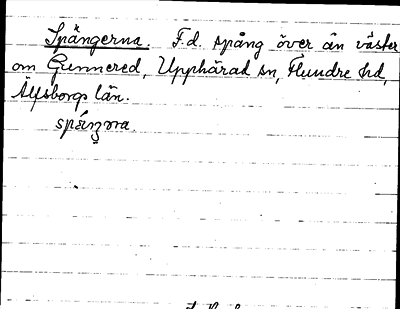 Spängerna. F.d. spång över ån väster
om Gunnered, Upphärad sn, Flundre hd,
Älfsborgs län.